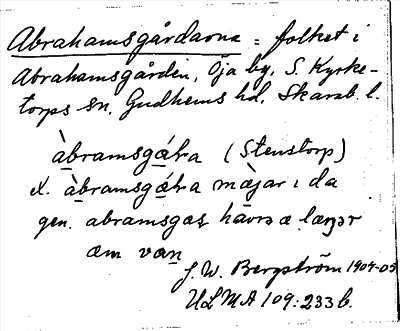 Abrahamsgårdarna = folket i
Abrahamsgården, Öja by, S. Kyrke-
torps sn, Gudhems hd, Skarab. l.
àbramsgæ̀ra (Stenstorp)
ex. àbramsgæ̀ra mæjar i da
gen. abramsgas havrə æ læŋər
æm van
J. W. Bergström 1904-05
ULMA 109:233 b.